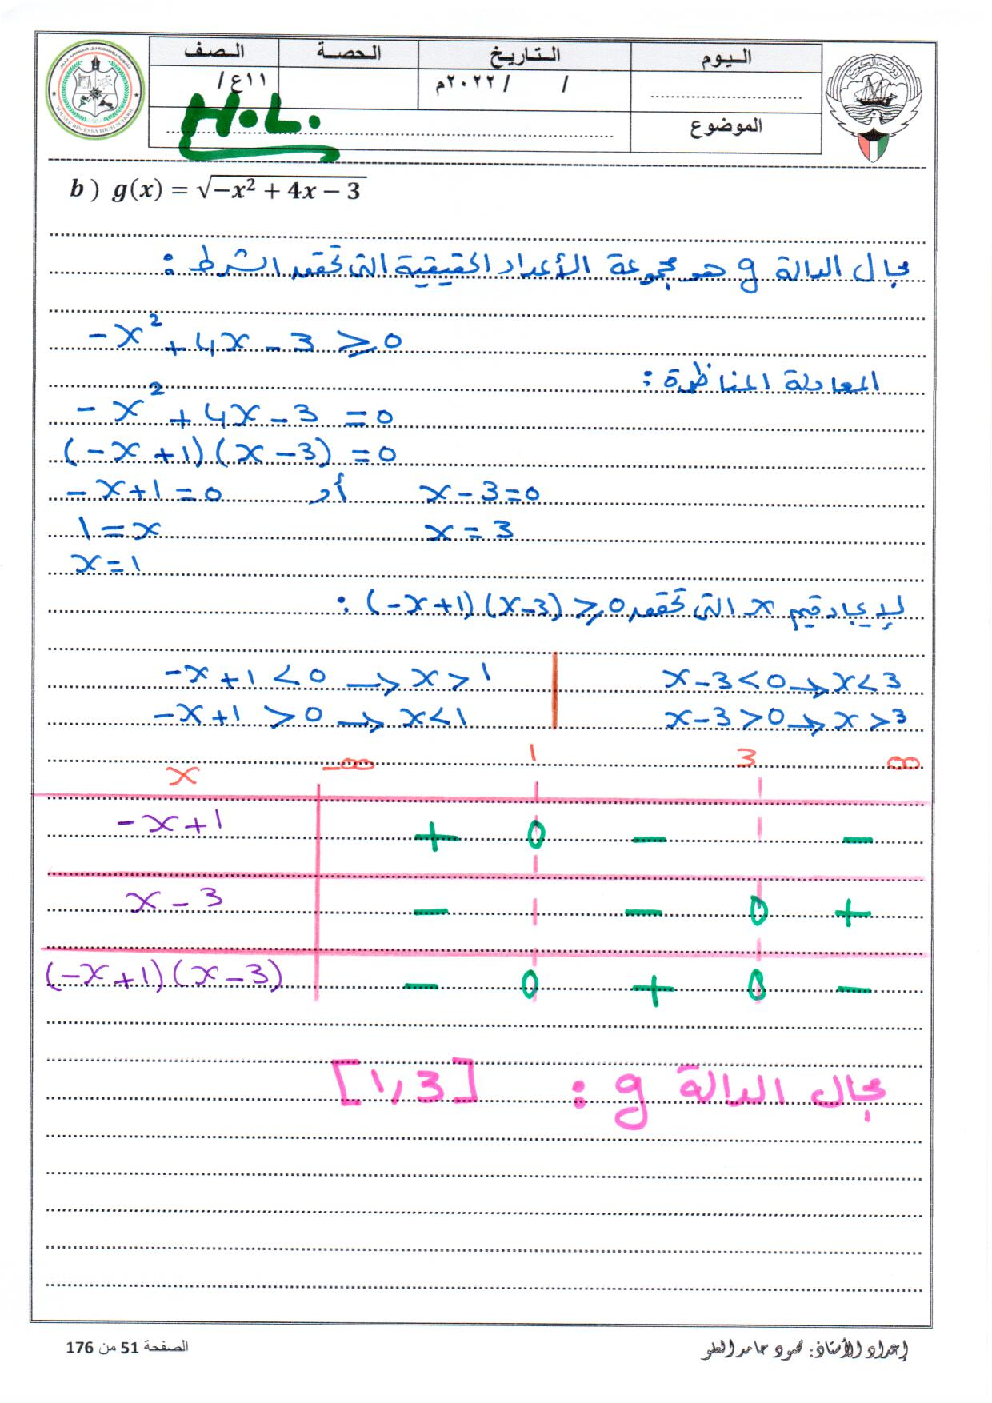 اليوم التاريخ الحصة الصف
/ / ٢٠٢٢م ١١ع/
الموضوع H.L.
b ) g(x) = √−x² + 4x − 3
مجال الدالة g هو مجموعة الأعداد الحقيقية التي تحقق الشرط :
-x² + 4x - 3 ≥ 0
المعادلة المناظرة :
-x² + 4x - 3 = 0
(-x +1)(x -3) = 0
-x+1=0 أو x-3=0
1=x x=3
x=1
لإيجاد قيم x التي تحقق (-x+1)(x-3) ≥ 0 :
-x+1<0 → x>1 x-3<0→x<3
-x+1>0 → x<1 x-3>0→x>3
x -∞ 1 3 ∞
-x+1 + 0 - -
x-3 - - 0 +
(-x+1)(x-3) - 0 + 0 -
مجال الدالة g : [1,3]
إعداد الأستاذ: محمود حامد الحلو
الصفحة 51 من 176